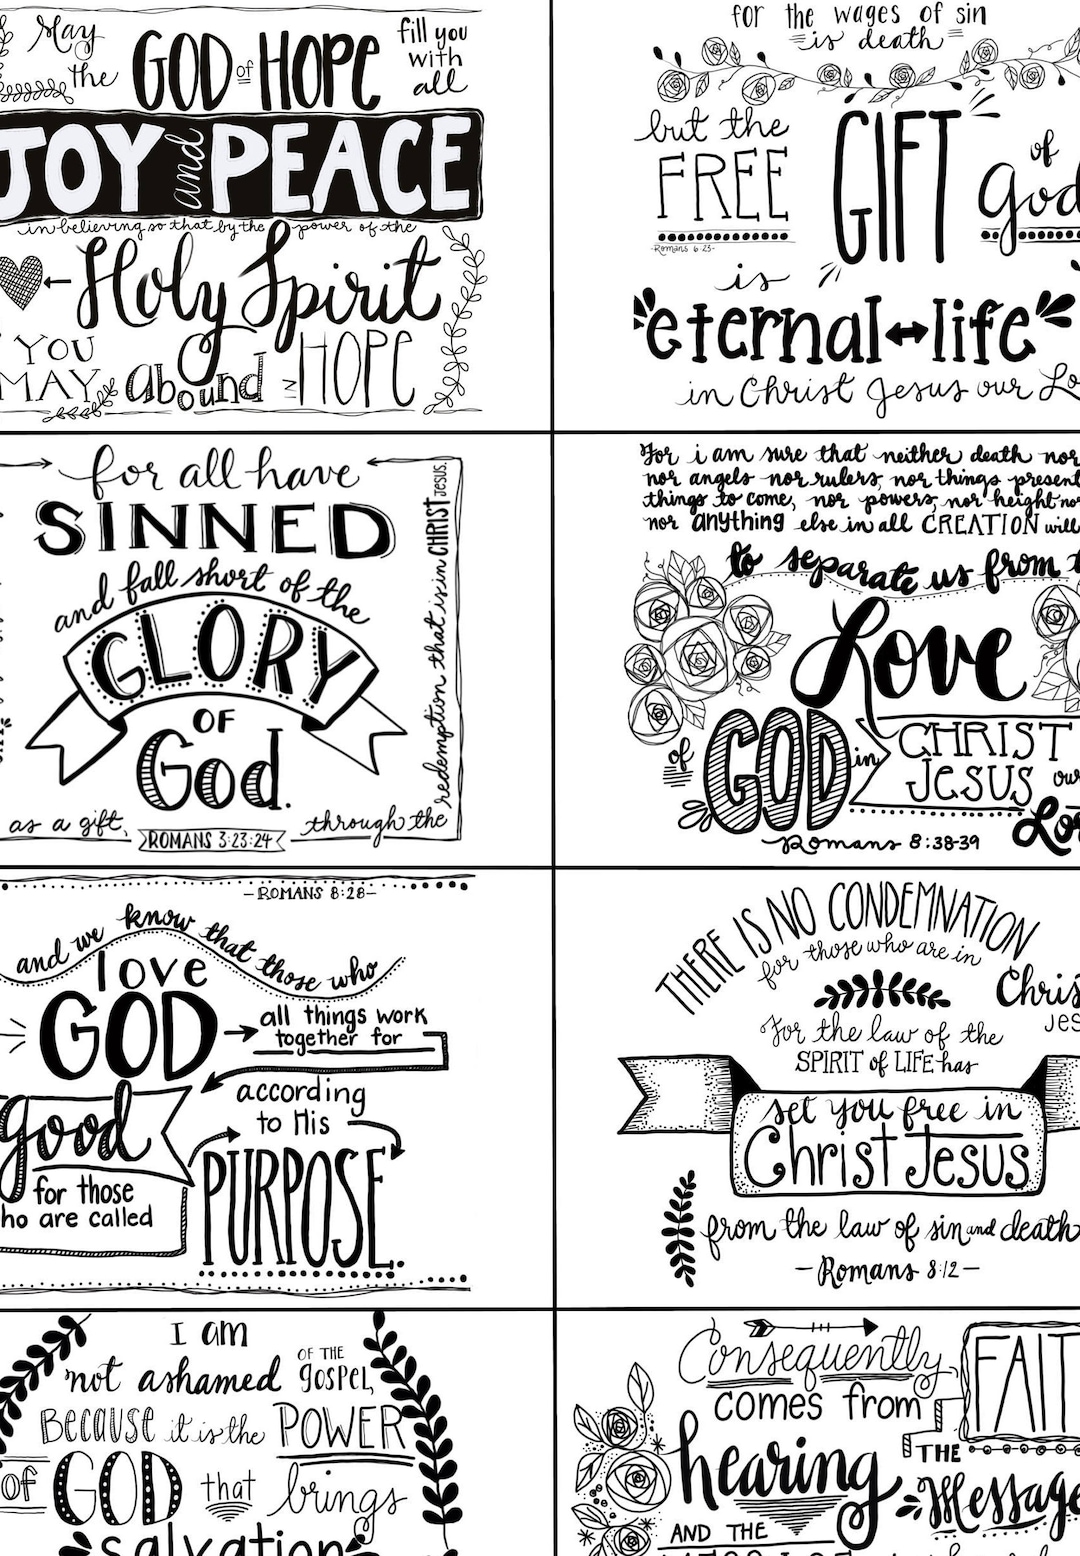 May the GOD of HOPE fill you with all
JOY and PEACE
in believing so that by the power of the
Holy Spirit
YOU MAY abound IN HOPE
for the wages of sin
is death
but the
FREE GIFT of God
Romans 6:23
is
eternal life
in Christ Jesus our
for all have
SINNED
and fall short of the
GLORY
OF
God.
as a gift,
ROMANS 3:23-24
through the
redemption that is in CHRIST JESUS.
For i am sure that neither death nor
nor angels nor rulers, nor things present
things to come, nor powers, nor height nor
nor anything else in all CREATION will
to separate us from
Love
of GOD in CHRIST
JESUS our
Romans 8:38-39
-ROMANS 8:28-
and we know that those who
love
GOD all things work
together for
good according
to His
for those
who are called
PURPOSE.
THERE IS NO CONDEMNATION
for those who are in
Christ
Jesus
For the law of the
SPIRIT of LIFE has
set you free in
Christ Jesus
from the law of sin and death
-Romans 8:12-
I am
not ashamed OF THE GOSPEL,
BECAUSE it is the POWER
of GOD that brings
salvation
Consequently
FAIT
comes from
hearing THE
Message
AND THE